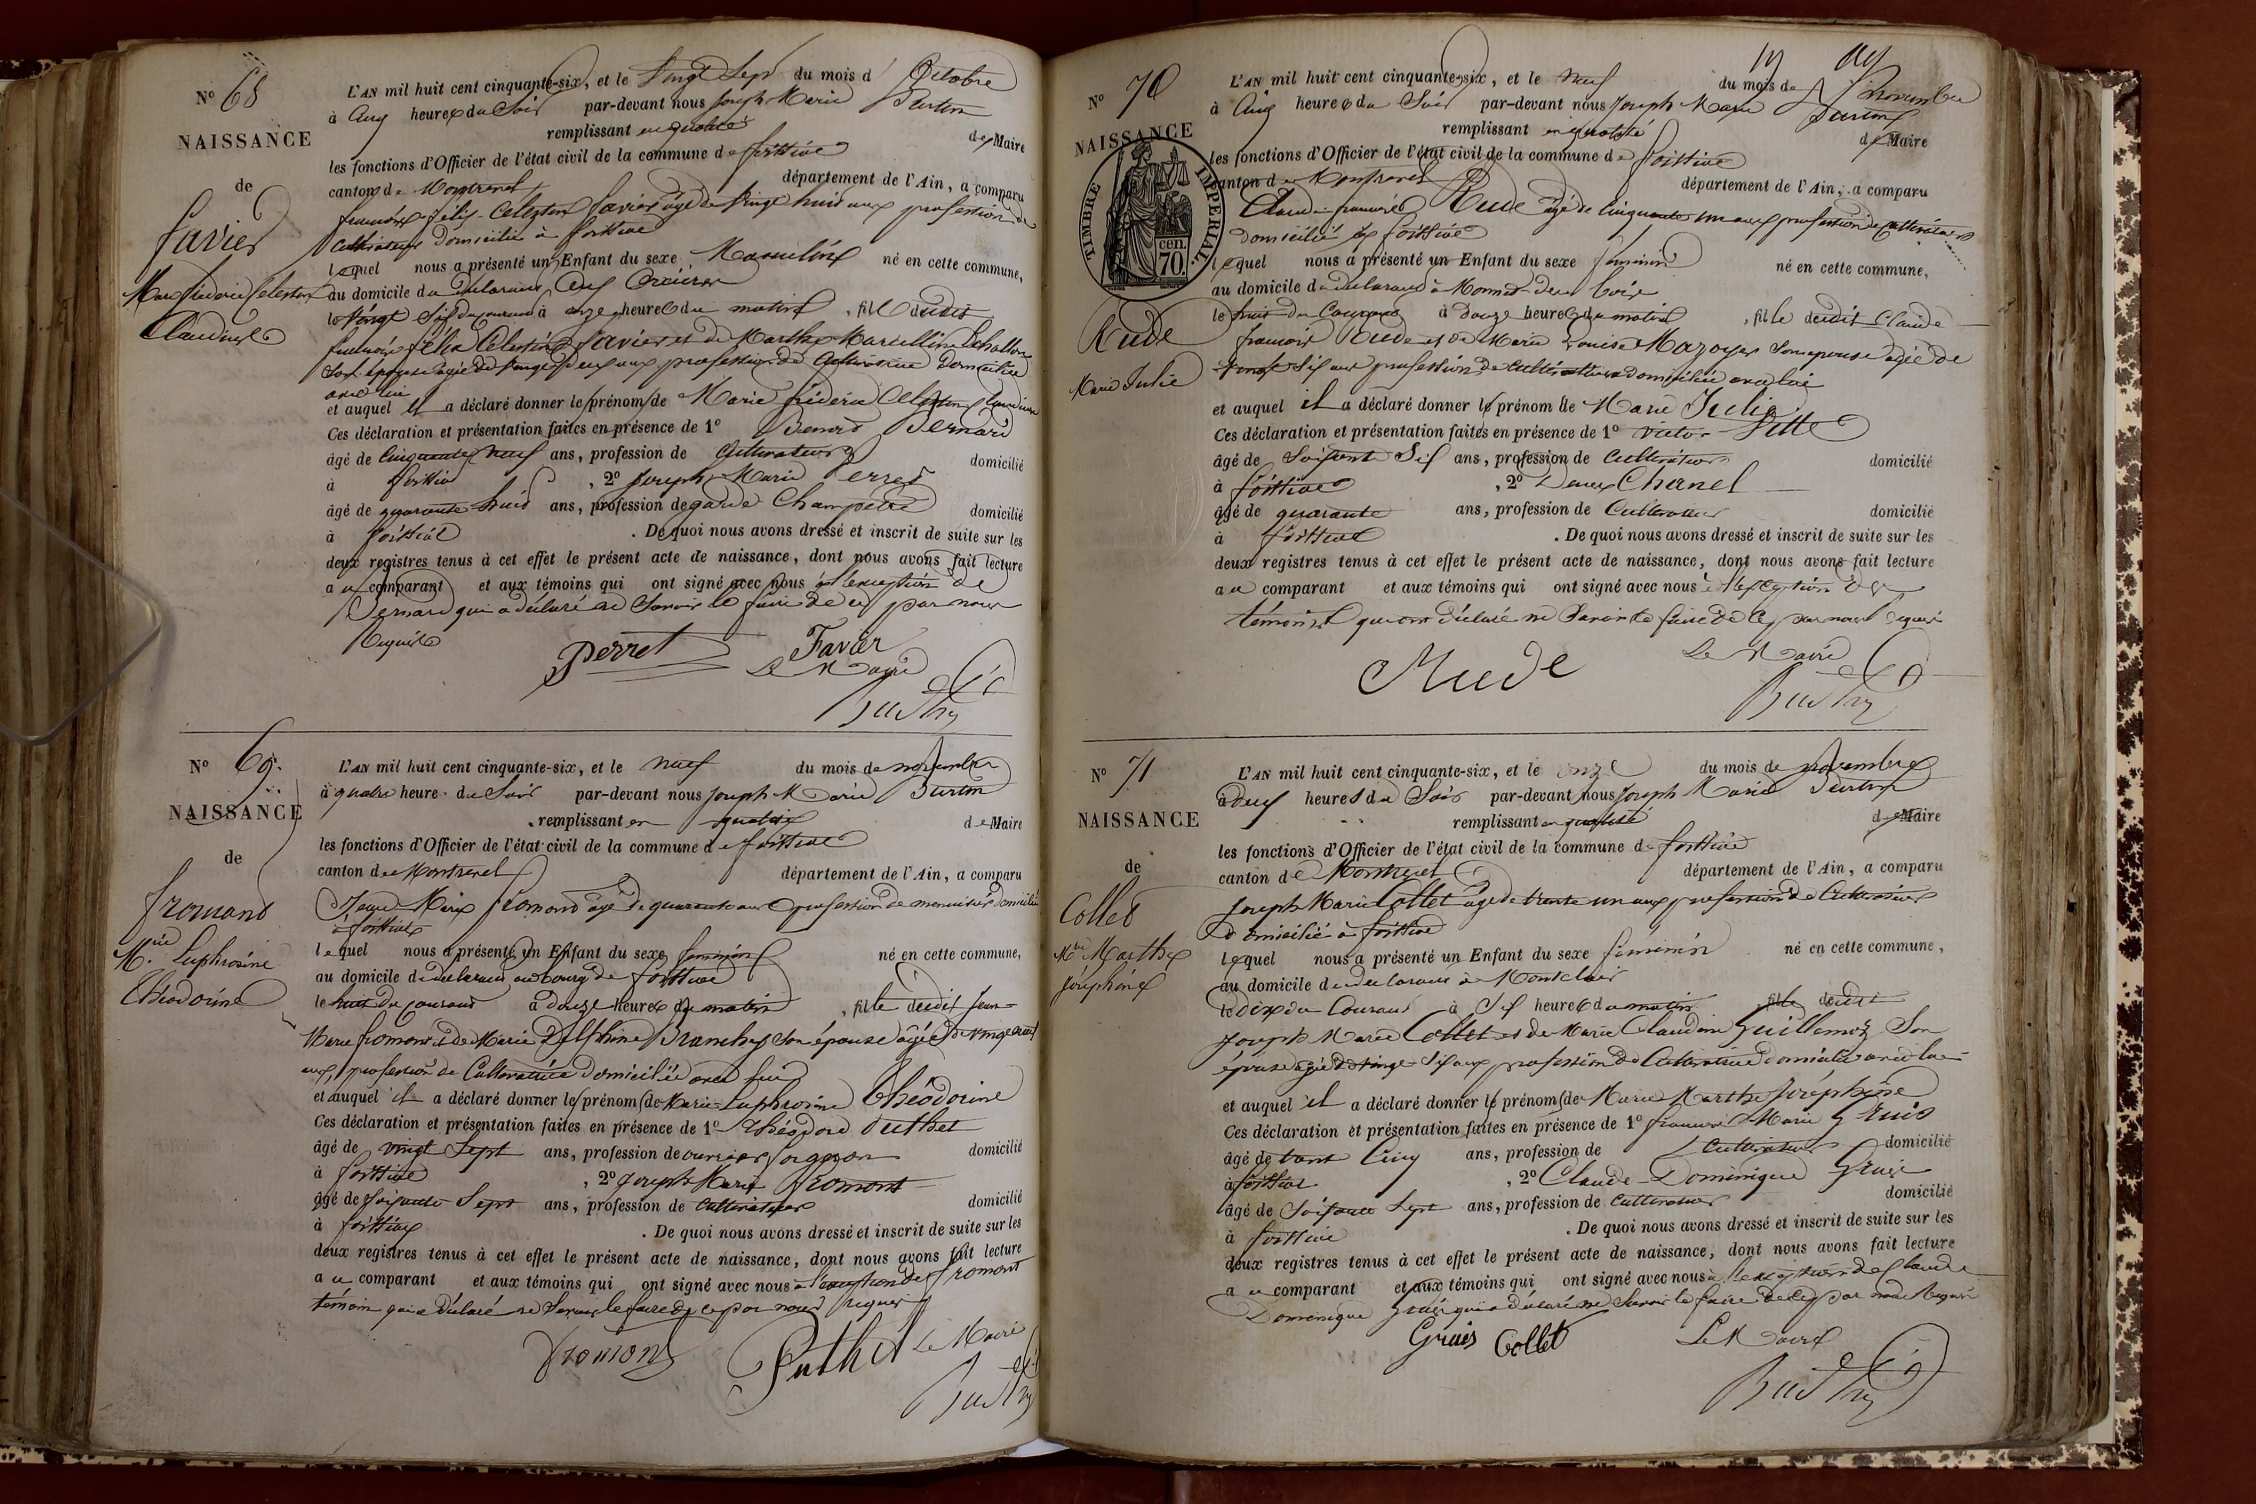 N° 68
NAISSANCE
de
favier
Marie frédéric Celestin
Claudius
L'AN mil huit cent cinquante-six, et le Vingt Sept du mois d'Octobre
à cinq heures du Soir par-devant nous Joseph Marie Burtin
remplissant en qualité de Maire
les fonctions d'Officier de l'état civil de la commune de foissiat
canton de Montrevel département de l'Ain, a comparu
françois félix Celestin favier âgé de Vingt huit ans profession de
Cultivateur domicilié à foissiat
lequel nous a présenté un Enfant du sexe Masculin né en cette commune,
au domicile du déclarant
le Vingt Six du courant à onze heures du matin, fils dudit
françois félix Celestin favier et de Marthe Marcelline
son épouse âgée de Vingt deux ans profession de Cultivatrice Domiciliée
avec lui
et auquel il a déclaré donner les prénoms de Marie frédéric Celestin Claudius
Ces déclaration et présentation faites en présence de 1° Benoit Bernard
âgé de Cinquante neuf ans, profession de Cultivateur domicilié
à foissiat, 2° Joseph Marie Perret
âgé de quarante huit ans, profession de garde Champêtre domicilié
à foissiat. De quoi nous avons dressé et inscrit de suite sur les
deux registres tenus à cet effet le présent acte de naissance, dont nous avons fait lecture
au comparant et aux témoins qui ont signé avec nous à l'exception de
Bernard qui a déclaré ne Savoir le faire de ce par nous
Requis
Perret Favier
Le Maire
Burtin
N° 69
NAISSANCE
de
fromont
Mie Euphrosine
Théodorine
L'AN mil huit cent cinquante-six, et le neuf du mois de novembre
à quatre heure du Soir par-devant nous Joseph Marie Burtin
remplissant en qualité de Maire
les fonctions d'Officier de l'état civil de la commune de foissiat
canton de Montrevel département de l'Ain, a comparu
Jean Marie fromont âgé de quarante ans profession de menuisier domicilié
à foissiat
lequel nous a présenté un Enfant du sexe féminin né en cette commune,
au domicile du déclarant au bourg de foissiat
le huit du courant à douze heures du matin, fille dudit Jean
Marie fromont et de Marie Delphine Branchy son épouse âgée de vingt neuf
ans, profession de Cultivatrice domiciliée avec lui
et auquel il a déclaré donner les prénoms de Marie Euphrosine Théodorine
Ces déclaration et présentation faites en présence de 1° Théodore Puthet
âgé de vingt Sept ans, profession de ouvrier forgeron domicilié
à foissiat, 2° Joseph Marie fromont
âgé de Soixante Sept ans, profession de Cultivateur domicilié
à foissiat. De quoi nous avons dressé et inscrit de suite sur les
deux registres tenus à cet effet le présent acte de naissance, dont nous avons fait lecture
au comparant et aux témoins qui ont signé avec nous à l'exception de fromont
témoin qui a déclaré ne Savoir le faire de ce par nous requis
fromont Puthet Le Maire
Burtin
N° 70
NAISSANCE
TIMBRE IMPERIAL
70 cen.
Rude
Marie Julie
L'AN mil huit cent cinquante-six, et le neuf du mois de novembre
à Cinq heures du Soir par-devant nous Joseph Marie Burtin
remplissant en qualité de Maire
les fonctions d'Officier de l'état civil de la commune de foissiat
canton de Montrevel département de l'Ain, a comparu
Claude françois Rude âgé de Cinquante un ans profession de Cultivateur
domicilié à foissiat
lequel nous a présenté un Enfant du sexe féminin né en cette commune,
au domicile du déclarant
le huit du Courant à Douze heures du matin, fille dudit Claude
françois Rude et de Marie Louise Mazoyer Son épouse âgée de
trente Six ans profession de Cultivatrice domiciliée avec lui
et auquel il a déclaré donner les prénom de Marie Julie
Ces déclaration et présentation faites en présence de 1° Victor
âgé de Soixante Six ans, profession de Cultivateur domicilié
à foissiat, 2° Denis Chanel
âgé de quarante ans, profession de Cultivateur domicilié
à foissiat. De quoi nous avons dressé et inscrit de suite sur les
deux registres tenus à cet effet le présent acte de naissance, dont nous avons fait lecture
au comparant et aux témoins qui ont signé avec nous à l'exception des
témoins qui ont déclaré ne Savoir le faire de ce par nous Requis
Rude
Le Maire
Burtin
N° 71
NAISSANCE
de
Collet
Mie Marthe
Joséphine
L'AN mil huit cent cinquante-six, et le onze du mois de novembre
à deux heures du Soir par-devant nous Joseph Marie Burtin
remplissant en qualité de Maire
les fonctions d'Officier de l'état civil de la commune de foissiat
canton de Montrevel département de l'Ain, a comparu
Joseph Marie Collet âgé de trente un ans profession de Cultivateur
domicilié à foissiat
lequel nous a présenté un Enfant du sexe féminin né en cette commune,
au domicile du déclarant à Montclair
le dix du Courant à Six heures du matin, fille dudit
Joseph Marie Collet et de Marie Claudine Guillermoz Son
épouse âgée de vingt Six ans profession de Cultivatrice domiciliée avec lui
et auquel il a déclaré donner les prénoms de Marie Marthe Joséphine
Ces déclaration et présentation faites en présence de 1° françois Marie Gruis
âgé de trente Cinq ans, profession de Cultivateur domicilié
à foissiat, 2° Claude Dominique Gruis
âgé de Soixante Sept ans, profession de Cultivateur domicilié
à foissiat. De quoi nous avons dressé et inscrit de suite sur les
deux registres tenus à cet effet le présent acte de naissance, dont nous avons fait lecture
au comparant et aux témoins qui ont signé avec nous à l'exception de Claude
Dominique Gruis qui a déclaré ne Savoir le faire de ce par nous Requis
Gruis Collet Le Maire
Burtin